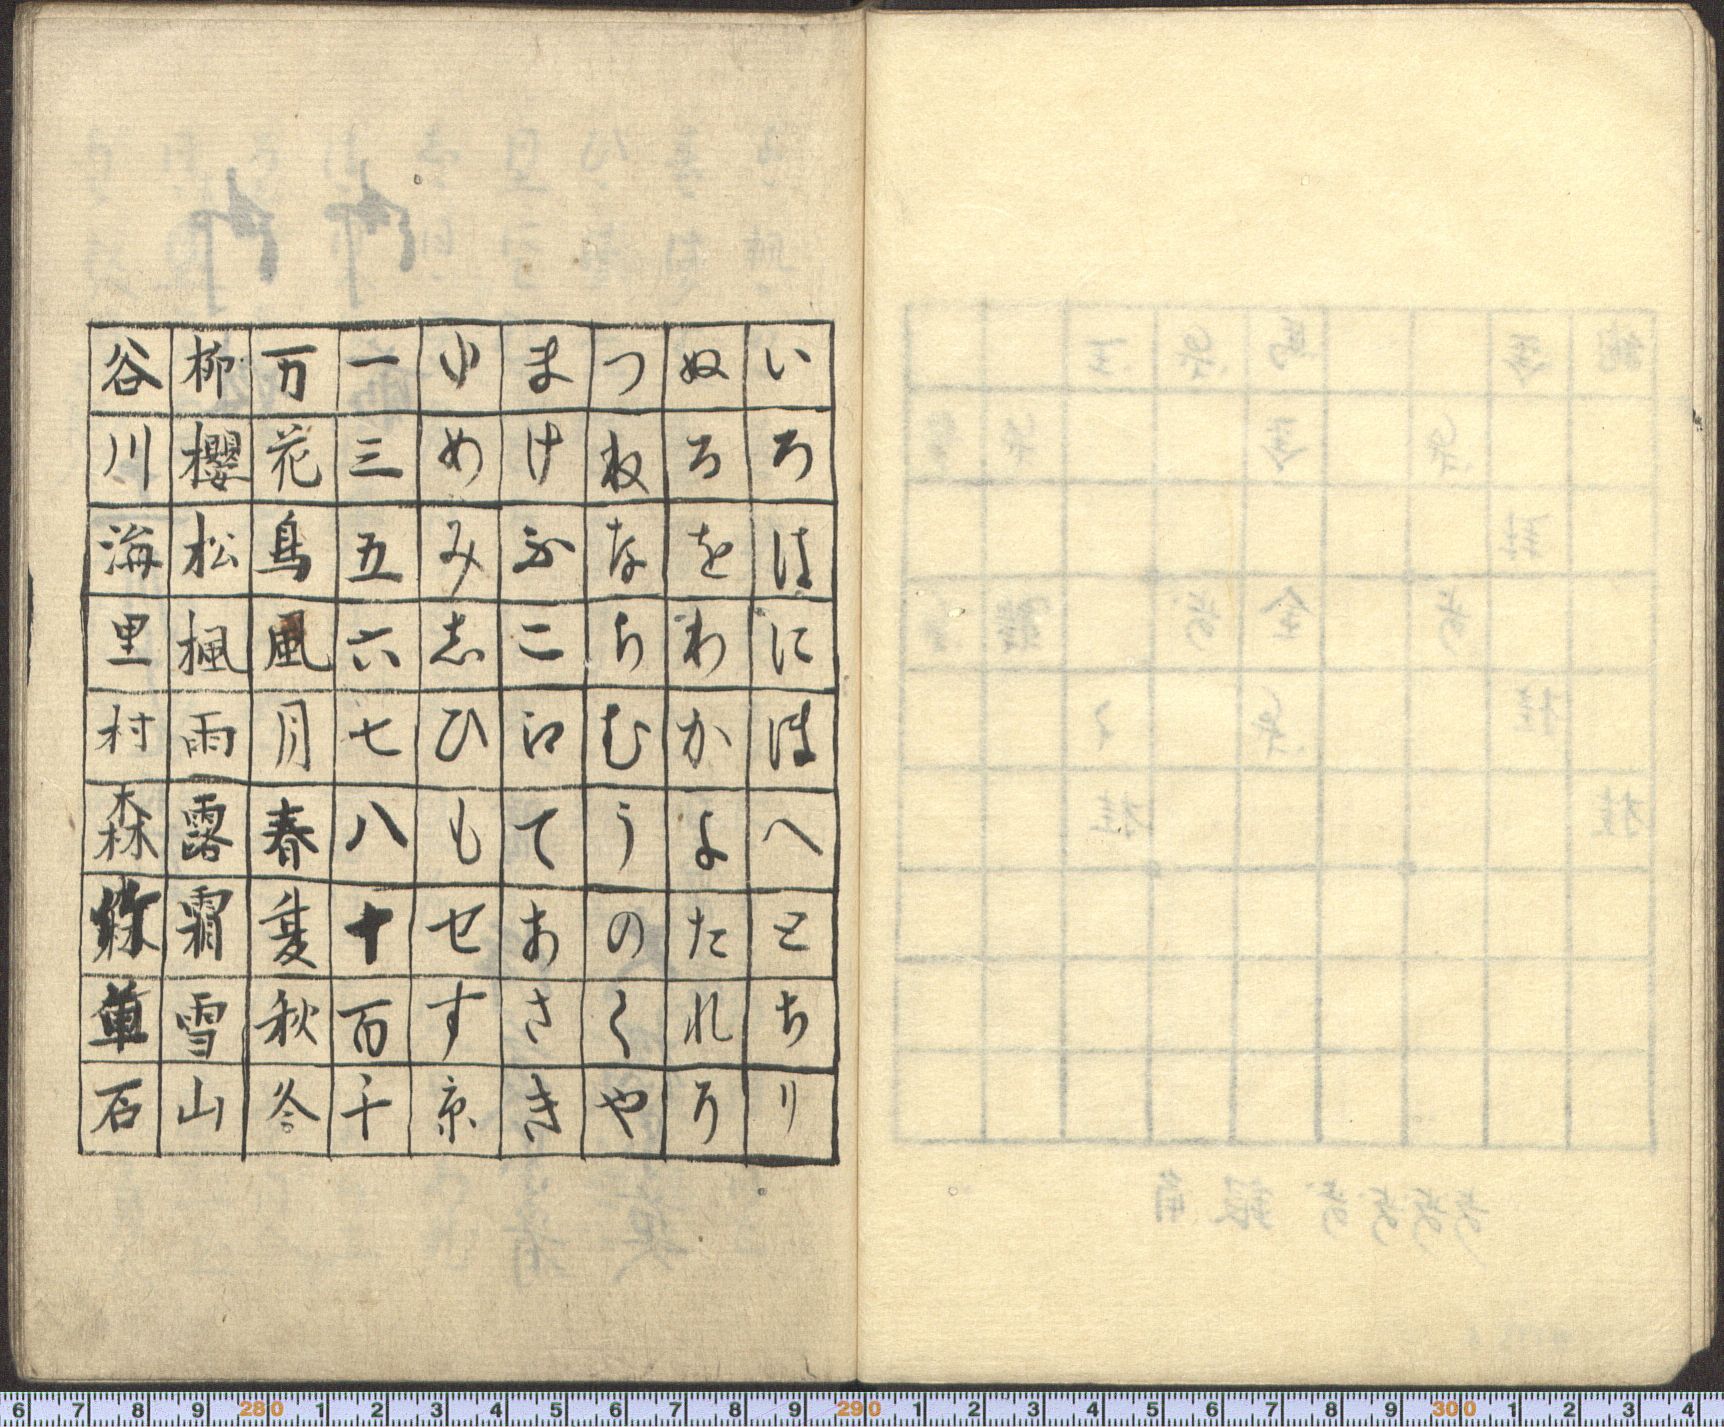 いろはにほへとちり
ぬるをわかよたれそ
つねならむうのくや
まけふこ江てあさき
ゆめみ志ひもせす京
一三五六七八十百千
万花鳥風月春夏秋冬
柳櫻松楓雨露霜雪山
谷川海里村森草石
6 7 8 9 280 1 2 3 4 5 6 7 8 9 290 1 2 3 4 5 6 7 8 9 300 1 2 3 4